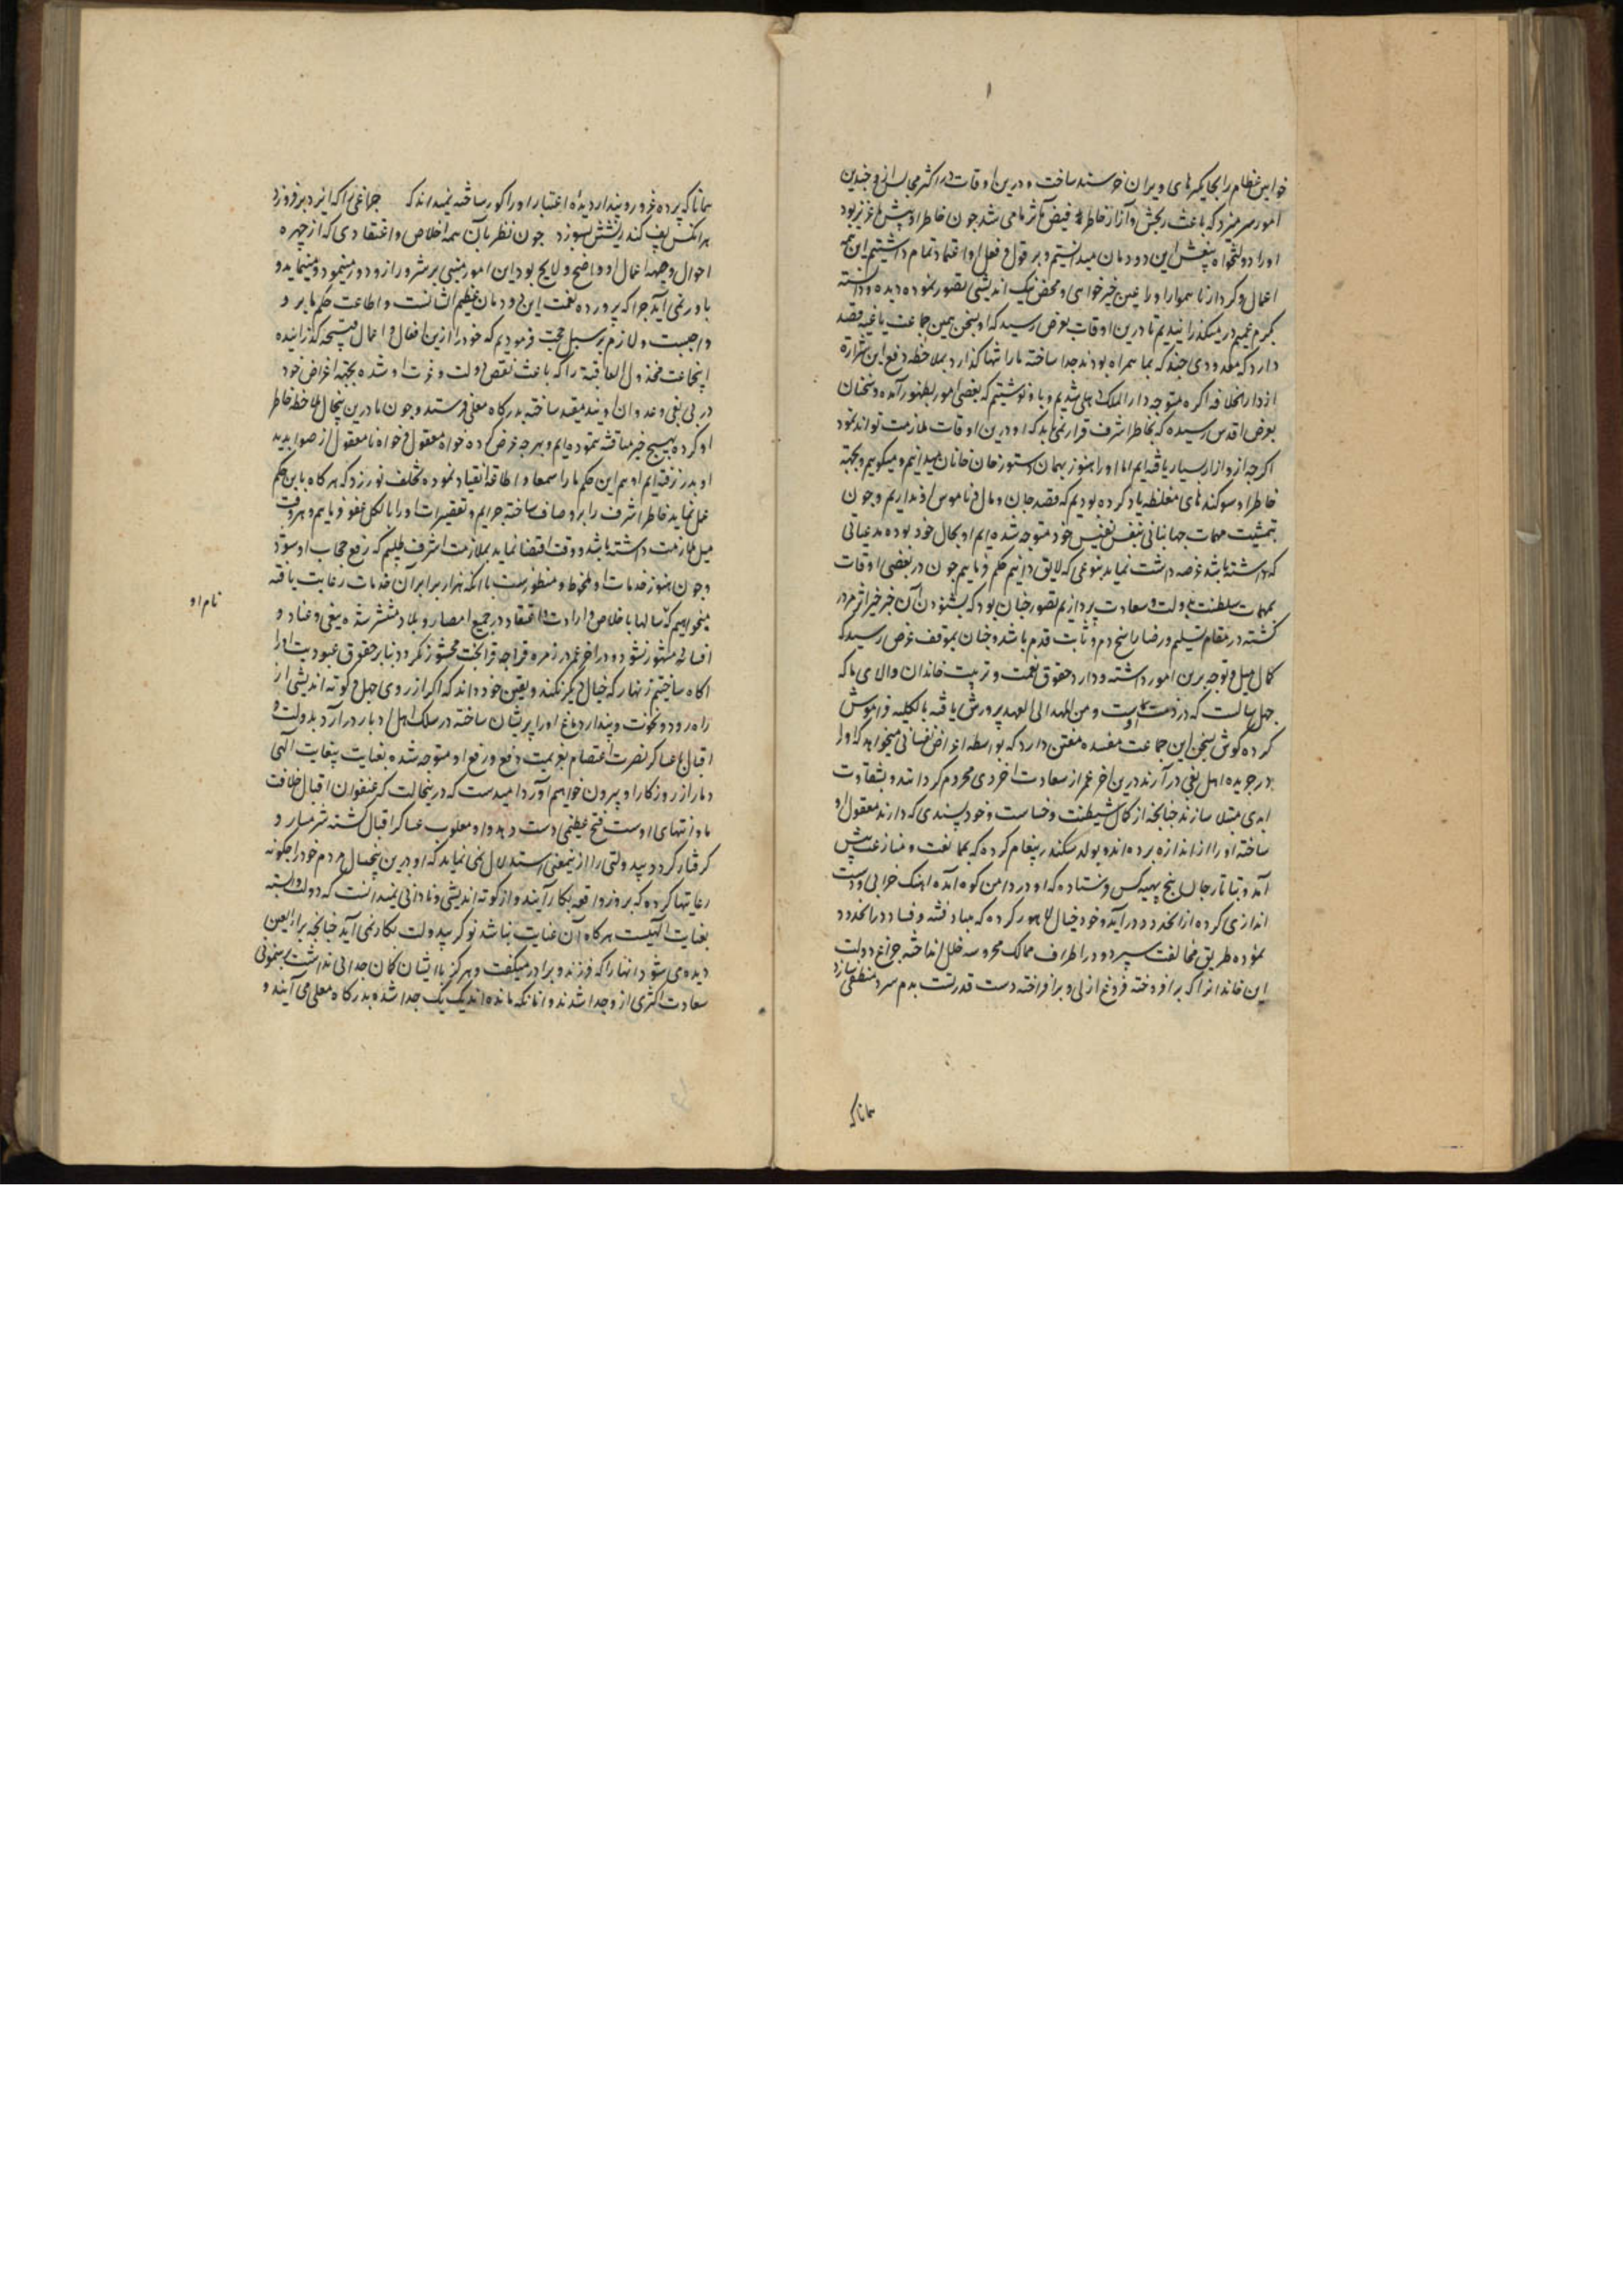 خوانین عظام را بجایگیرهای ویران خرسند ساخت و درین اوقات در اکثر مجالس از و چندین
امور سر میزد که باعث رنجش و آزار خاطر فیض مآثر ما می شد چون خاطر او پیش ما عزیز بود
او را دولتخواه این دودمان میدانستیم و بر قول و فعل او اعتماد تمام داشتیم این همه
اعمال و کردار ناهموار او را عین خیرخواهی و محض نیک اندیشی تصور نموده دیده و دانسته
بکرم عمیم در میگذرانیدیم تا درین اوقات بعرض رسید که او بسخن همین جماعت باغیه قصد
دارد که معدودی چند که بما همراه بودند جدا ساخته ما را تنها گذارد بملاحظه دفع این شراره
از دارالخلافه اگره متوجه دارالملک دهلی شدیم و باو نوشتیم که بعضی امور بظهور آمده و سخنان
بعرض اقدس رسیده که بخاطر اشرف قرار نمی یابد که او درین اوقات ملازمت تواند نمود
اگرچه ازو آزار بسیار یافته ایم اما او را هنوز بهمان دستور خان خانان میدانیم و میگوییم و بجهة
خاطر او سوکندهای مغلظه یاد کرده بودیم که قصد جان و مال و ناموس او نداریم و چون
بتمشیت مهمات جهانبانی بنفس نفیس خود متوجه شده ایم او بحال خود بوده مدعیاتی
که داشته باشد عرضه داشت نماید بنوعی که لایق دانیم حکم فرماییم چون در بعضی اوقات
بمهمات سلطنت بدولت و سعادت پردازیم تصور چنان بود که بشنودن آن خبر خیر اثر
گشته در مقام تسلیم و رضا راسخ دم و ثابت قدم باشد و چنان بموقف عرض رسید که
کمال میل و توجه برین امور داشته و دارد حقوق نعمت و تربیت خاندان والای ما که
چهل سالست که در ذمت اوست و من المهد الی العهد پرورش یافته بالکلیه فراموش
کرده گوش بسخن این جماعت مفسده مفتن دارد که بواسطه اغراض نفسانی میخواهد که او را
در جریده اهل بغی در آرند درین آخر عمر از سعادت اخروی محروم گردانند و بشقاوت
ابدی مبتلا سازند چنانچه از کمال شیطنت و خباثت و خودپسندی که دارند معقول او
ساخته او را از اندازه برده اند و بولد سکندر پیغام کرده که بممانعت و منازعت پیش
آمد و بتاتار خان پنج بهیه کس فرستاده که او در دامن کوه آمده آهنک خرابی و دست
اندازی کرده از آنحدود در آید و خود خیال لاهور کرده که مبادا فتنه و فساد در آنحدود
نموده طریق مخالفت سپرد و در اطراف ممالک محروسه خلل انداخته چراغ دولت
این خاندانرا که بر افروخته فروغ ازلی و بر افراخته دست قدرتست بدم سرد منطفی سازد
همانا که
همانا که پرده غرور و پندار دیده اعتبار او را کور ساخته نمیداند که چراغی را که ایزد بر فروزد
هر آنکس پف کند ریشش بسوزد چون نظر بآن همه اخلاص و اعتقادی که از چهره
احوال و جبهه اعمال او واضح و لایح بود این امور مبنی بر شرور ازو دور مینمود و مینماید و
باور نمی آید چرا که پرورده نعمت این دودمان عظیم الشانست و اطاعت حکم ما برو
واجبست و لازم بر سبیل حجت فرمودیم که خود را ازین افعال و اعمال قبیحه گذرانیده
اینجماعت مخذول العاقبة را که باعث نقص دولت و عزت او شده بجهة اغراض خود
در پی بغی و عدوان اویند مقید ساخته بدرگاه معلی فرستد و چون ما درین پنجسال ملاحظه خاطر
او کرده بهیچ خیر مناقشه ننموده ایم و بهرچه عرض کرده خواه معقول و خواه نامعقول از صوابدید
او بدر نرفته ایم او هم این حکم ما را سمعا و اطاعة انقیاد نموده تخلف نورزد که هرگاه باین حکم
عمل نماید خاطر اشرف را برو صاف ساخته جرایم و تقصیرات او را بالکل عفو فرماییم و هر وقت
میل ملازمت داشته باشد و وقت اقتضا نماید بملازمت اشرف طلبیم که رفع حجاب او شود
و چون هنوز خدمات او ملحوظ و منظورست با آنکه هزار برابر آن خدمات رعایت یافته
میخواهیم که سالها باخلاص و ارادت و اعتقاد در جمیع امصار و بلاد منتشر شده ببغی و عناد و
نام او
افسانه مشهور نشود و در آخر عمر در زمره قراچه قرابخت محشور نگردد بنابر حقوق عبودیت او را
آگاه ساختیم زنهار که خیال دیگر نکند و یقین خود داند که اگر از روی جهل و کوته اندیشی از
راه رود و نخوت و پندار دماغ او را پریشان ساخته در سلک اهل ادبار در آرد بدولت و
اقبال با عساکر نصرت اعتصام بعزیمت دفع و رفع او متوجه شده بعنایت بیغایت الهی
دمار از روزگار او بیرون خواهیم آورد امیدست که درینحالت که عنفوان اقبال خلافت
ما و انتهای اوست فتح عظیمی دست دهد و او مغلوب عساکر اقبال گشته شرمسار و
گرفتار گردد بیدولتی را ازینمعنی استدلال نمی نماید که او درین پنجسال مردم خود را چگونه
رعایتها کرده که بروز واقعه بکار آیند و از کوته اندیشی و نادانی نمیدانست که دولت وابسته
بعنایت الهیست هرگاه آن عنایت نباشد نوکر بیدولت بکار نمی آید چنانچه برای العین
دیده می شود آنها را که فرزند و برادر میگفت و هرگز باایشان گمان جدایی نداشت برهنمونی
سعادت اکثری ازو جدا شدند و آنانکه مانده اند یک یک جدا شده بدرگاه معلی می آیند و